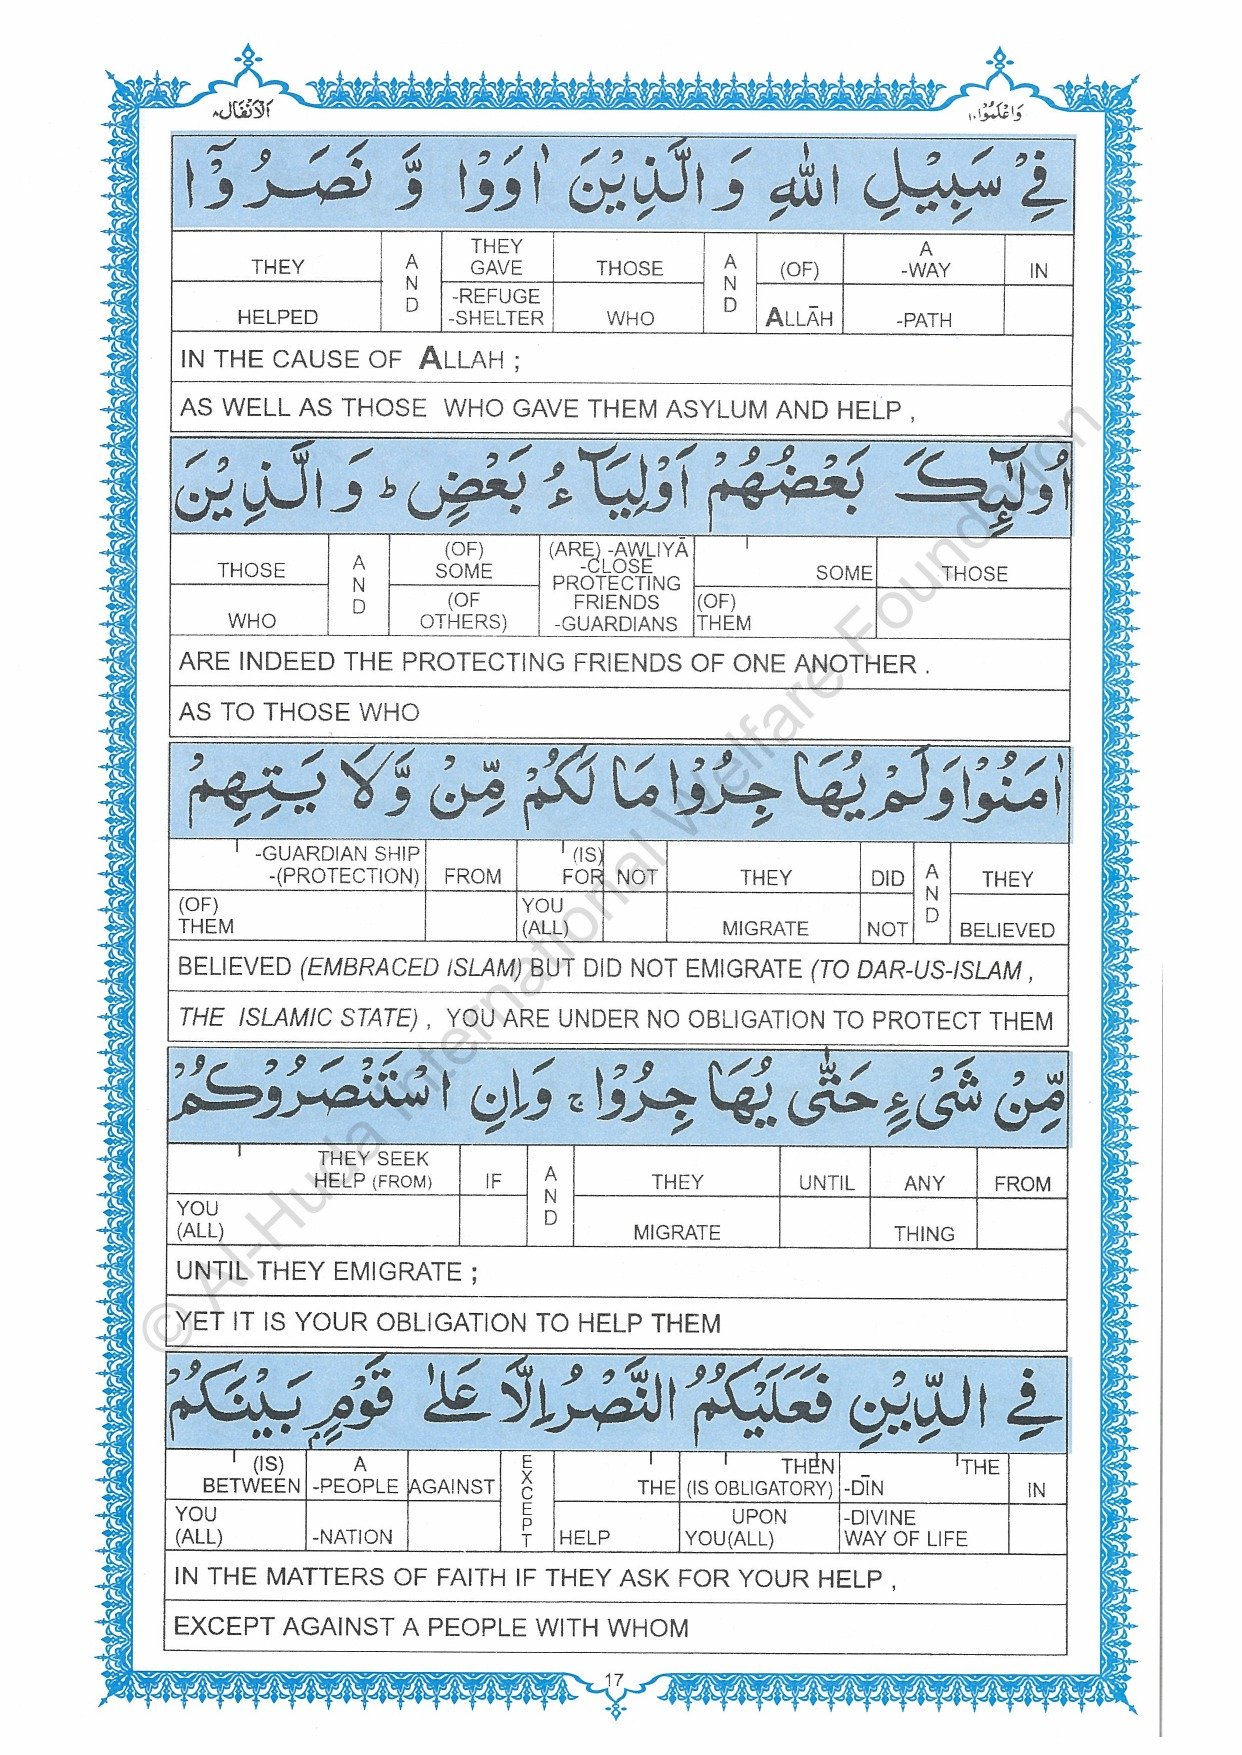 الانفال ٨
واعلموا ١٠
فِيْ سَبِيْلِ اللّٰهِ وَ الَّذِيْنَ اٰوَوْا وَّ نَصَرُوْۤا
THEY | AND | THEY GAVE | THOSE | AND | (OF) | A -WAY | IN
HELPED | -REFUGE -SHELTER | WHO | ALLĀH | -PATH
IN THE CAUSE OF ALLAH ;
AS WELL AS THOSE WHO GAVE THEM ASYLUM AND HELP ,
اُولٰٓئِكَ بَعْضُهُمْ اَوْلِيَآءُ بَعْضٍ ؕ وَ الَّذِيْنَ
THOSE | AND | (OF) SOME | (ARE) -AWLIYĀ -CLOSE PROTECTING FRIENDS -GUARDIANS | SOME | THOSE
WHO | (OF OTHERS) | (OF) THEM
ARE INDEED THE PROTECTING FRIENDS OF ONE ANOTHER .
AS TO THOSE WHO
اٰمَنُوْا وَلَمْ يُهَاجِرُوْا مَا لَكُمْ مِّنْ وَّلَا يَتِهِمْ
-GUARDIAN SHIP -(PROTECTION) | FROM | (IS) FOR | NOT | THEY | DID | AND | THEY
(OF) THEM | YOU (ALL) | MIGRATE | NOT | BELIEVED
BELIEVED (EMBRACED ISLAM) BUT DID NOT EMIGRATE (TO DAR-US-ISLAM ,
THE ISLAMIC STATE) , YOU ARE UNDER NO OBLIGATION TO PROTECT THEM
مِّنْ شَيْءٍ حَتّٰى يُهَاجِرُوْا ۚ وَاِنِ اسْتَنْصَرُوْكُمْ
THEY SEEK HELP (FROM) | IF | AND | THEY | UNTIL | ANY | FROM
YOU (ALL) | MIGRATE | THING
UNTIL THEY EMIGRATE ;
YET IT IS YOUR OBLIGATION TO HELP THEM
فِي الدِّيْنِ فَعَلَيْكُمُ النَّصْرُ اِلَّا عَلٰى قَوْمٍۭ بَيْنَكُمْ
(IS) BETWEEN | A -PEOPLE | AGAINST | EXCEPT | THE | THEN (IS OBLIGATORY) | THE -DĪN | IN
YOU (ALL) | -NATION | HELP | UPON YOU(ALL) | -DIVINE WAY OF LIFE
IN THE MATTERS OF FAITH IF THEY ASK FOR YOUR HELP ,
EXCEPT AGAINST A PEOPLE WITH WHOM
17
© Al-Huda International Welfare Foundation